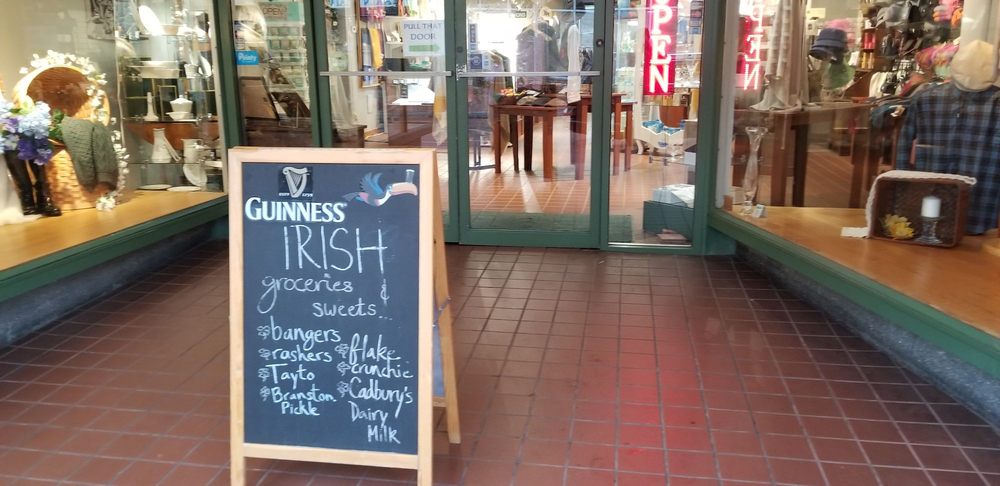 PULL THAT
DOOR
OPEN
OPEN
ESTD 1759
GUINNESS
IRISH
groceries &
sweets...
bangers
rashers
Tayto
Branston
Pickle
flake
crunchie
Cadbury's
Dairy
Milk